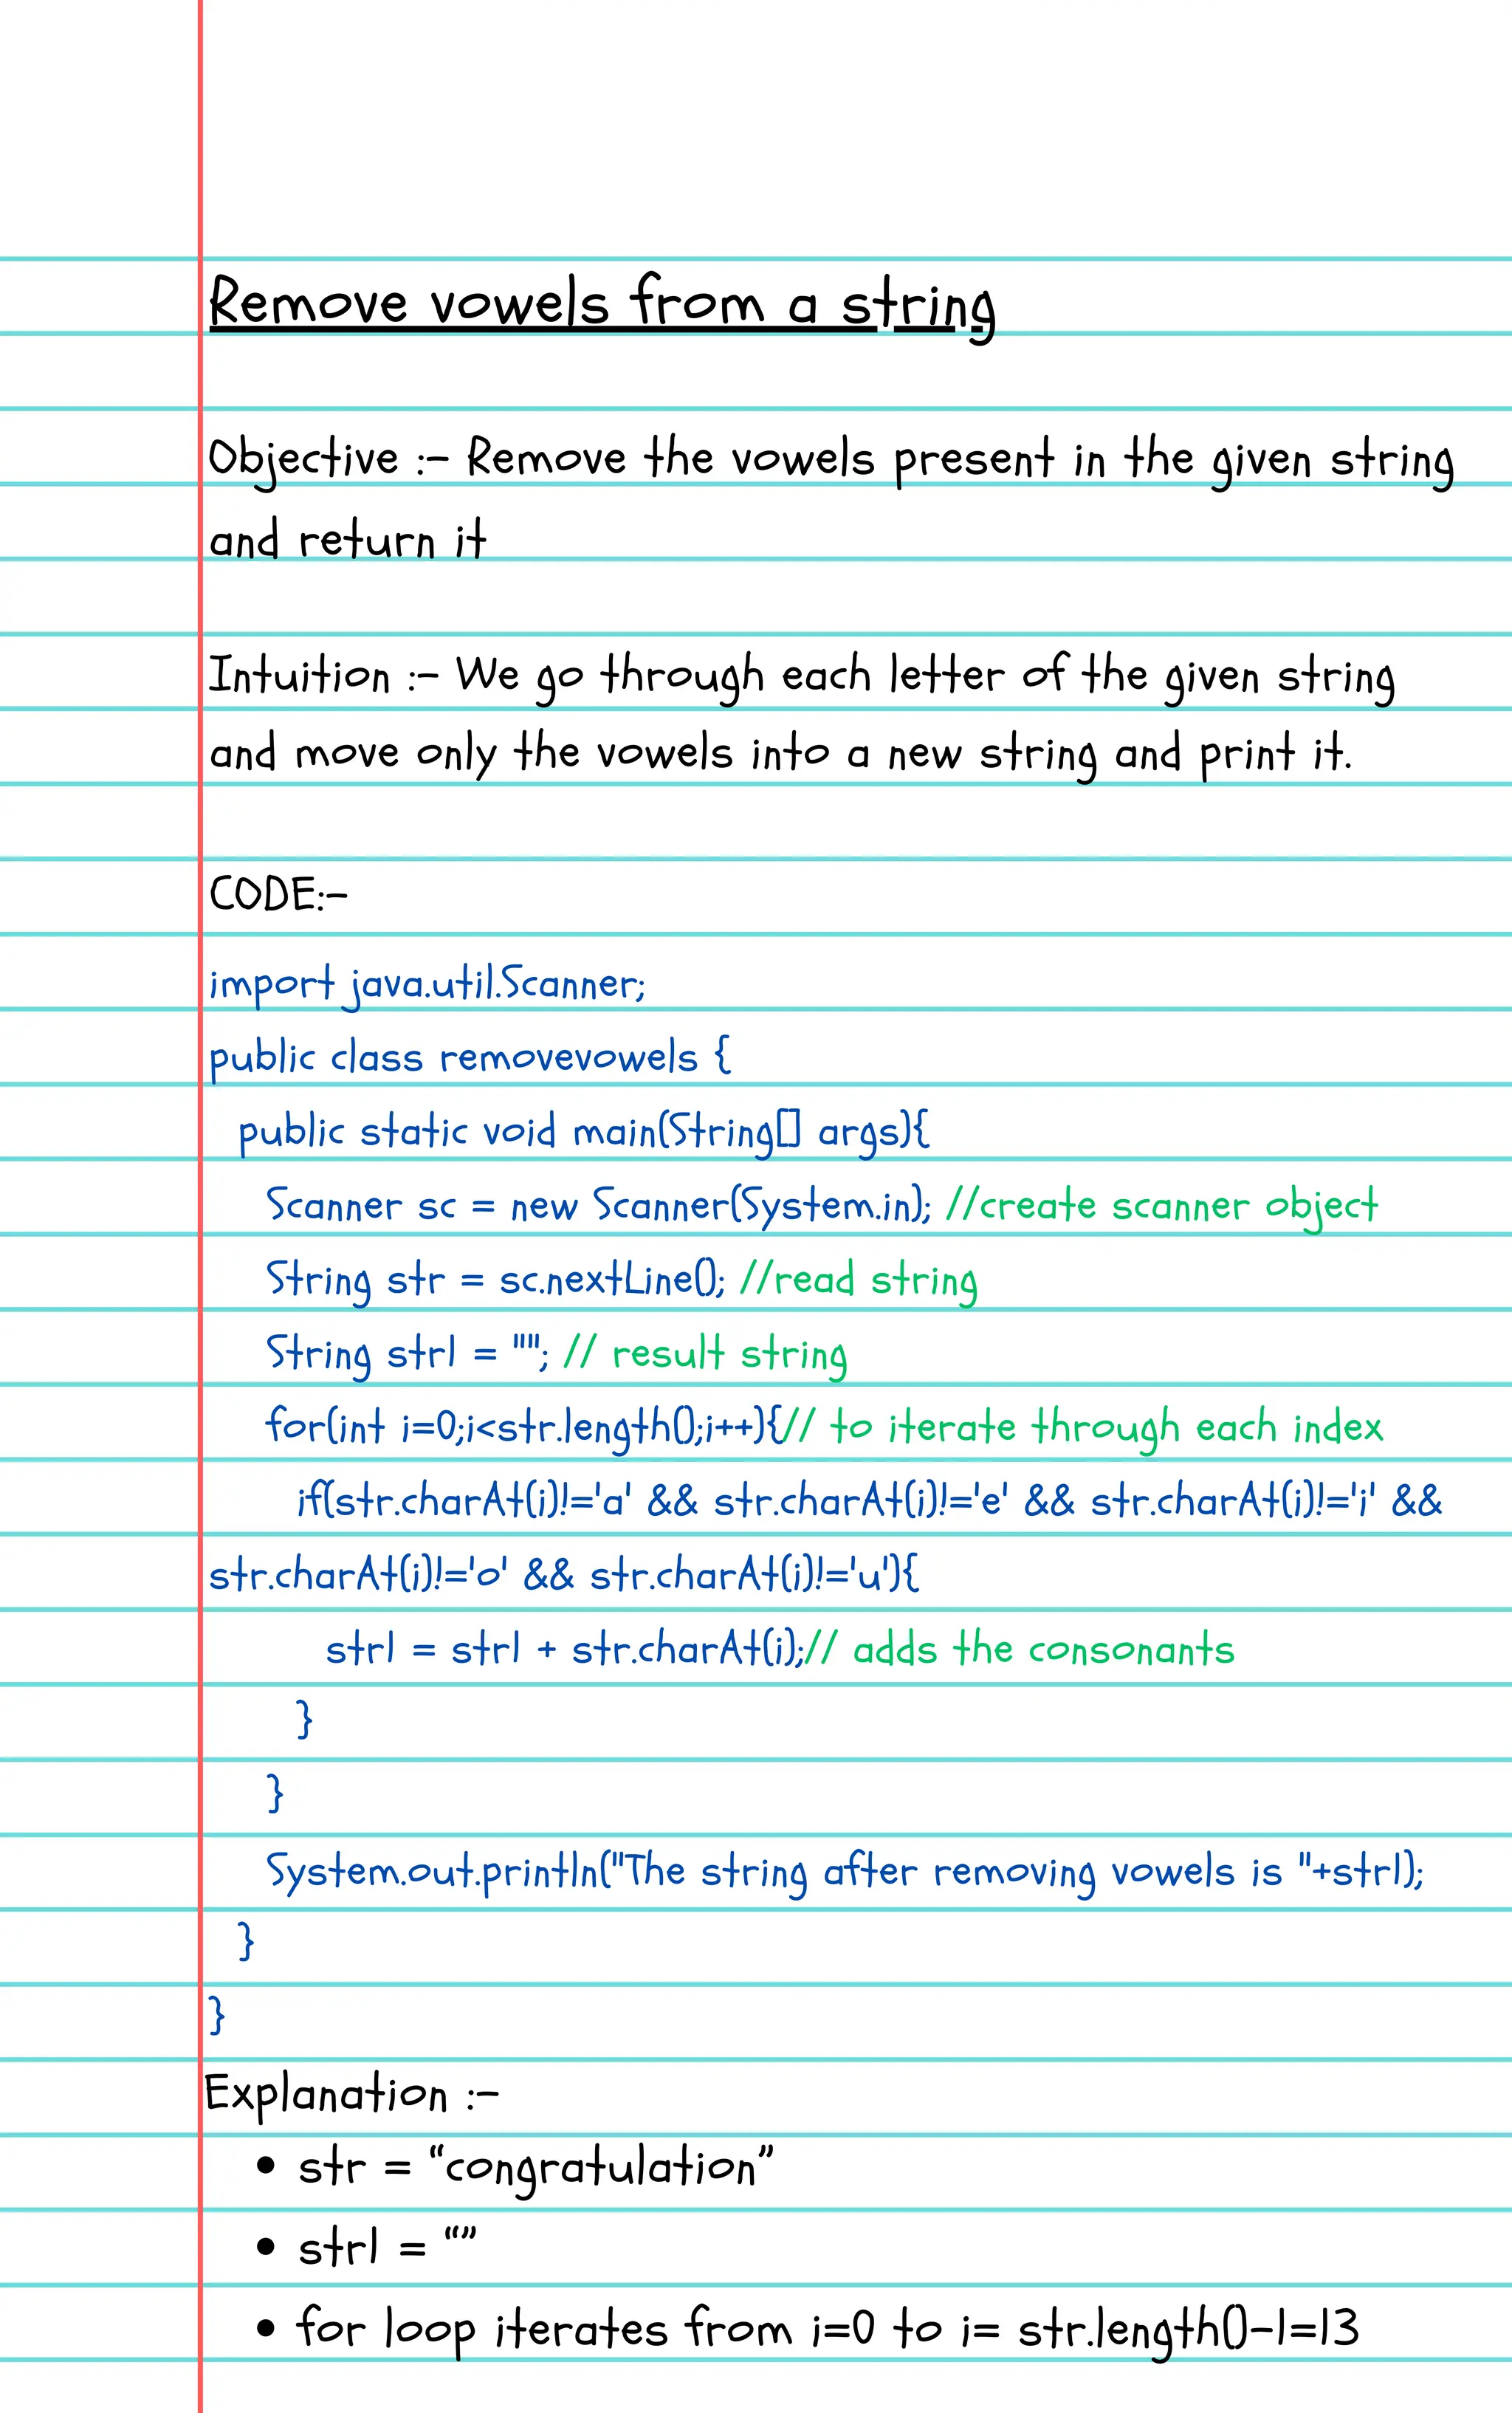 Remove vowels from a string
Objective :- Remove the vowels present in the given string
and return it
Intuition :- We go through each letter of the given string
and move only the vowels into a new string and print it.
CODE:-
import java.util.Scanner;
public class removevowels {
public static void main(String[] args){
Scanner sc = new Scanner(System.in); //create scanner object
String str = sc.nextLine(); //read string
String str1 = ""; // result string
for(int i=0;i<str.length();i++){// to iterate through each index
if(str.charAt(i)!='a' && str.charAt(i)!='e' && str.charAt(i)!='i' &&
str.charAt(i)!='o' && str.charAt(i)!='u'){
str1 = str1 + str.charAt(i);// adds the consonants
}
}
System.out.println("The string after removing vowels is "+str1);
}
}
Explanation :-
• str = “congratulation”
• str1 = “”
• for loop iterates from i=0 to i= str.length()-1=13